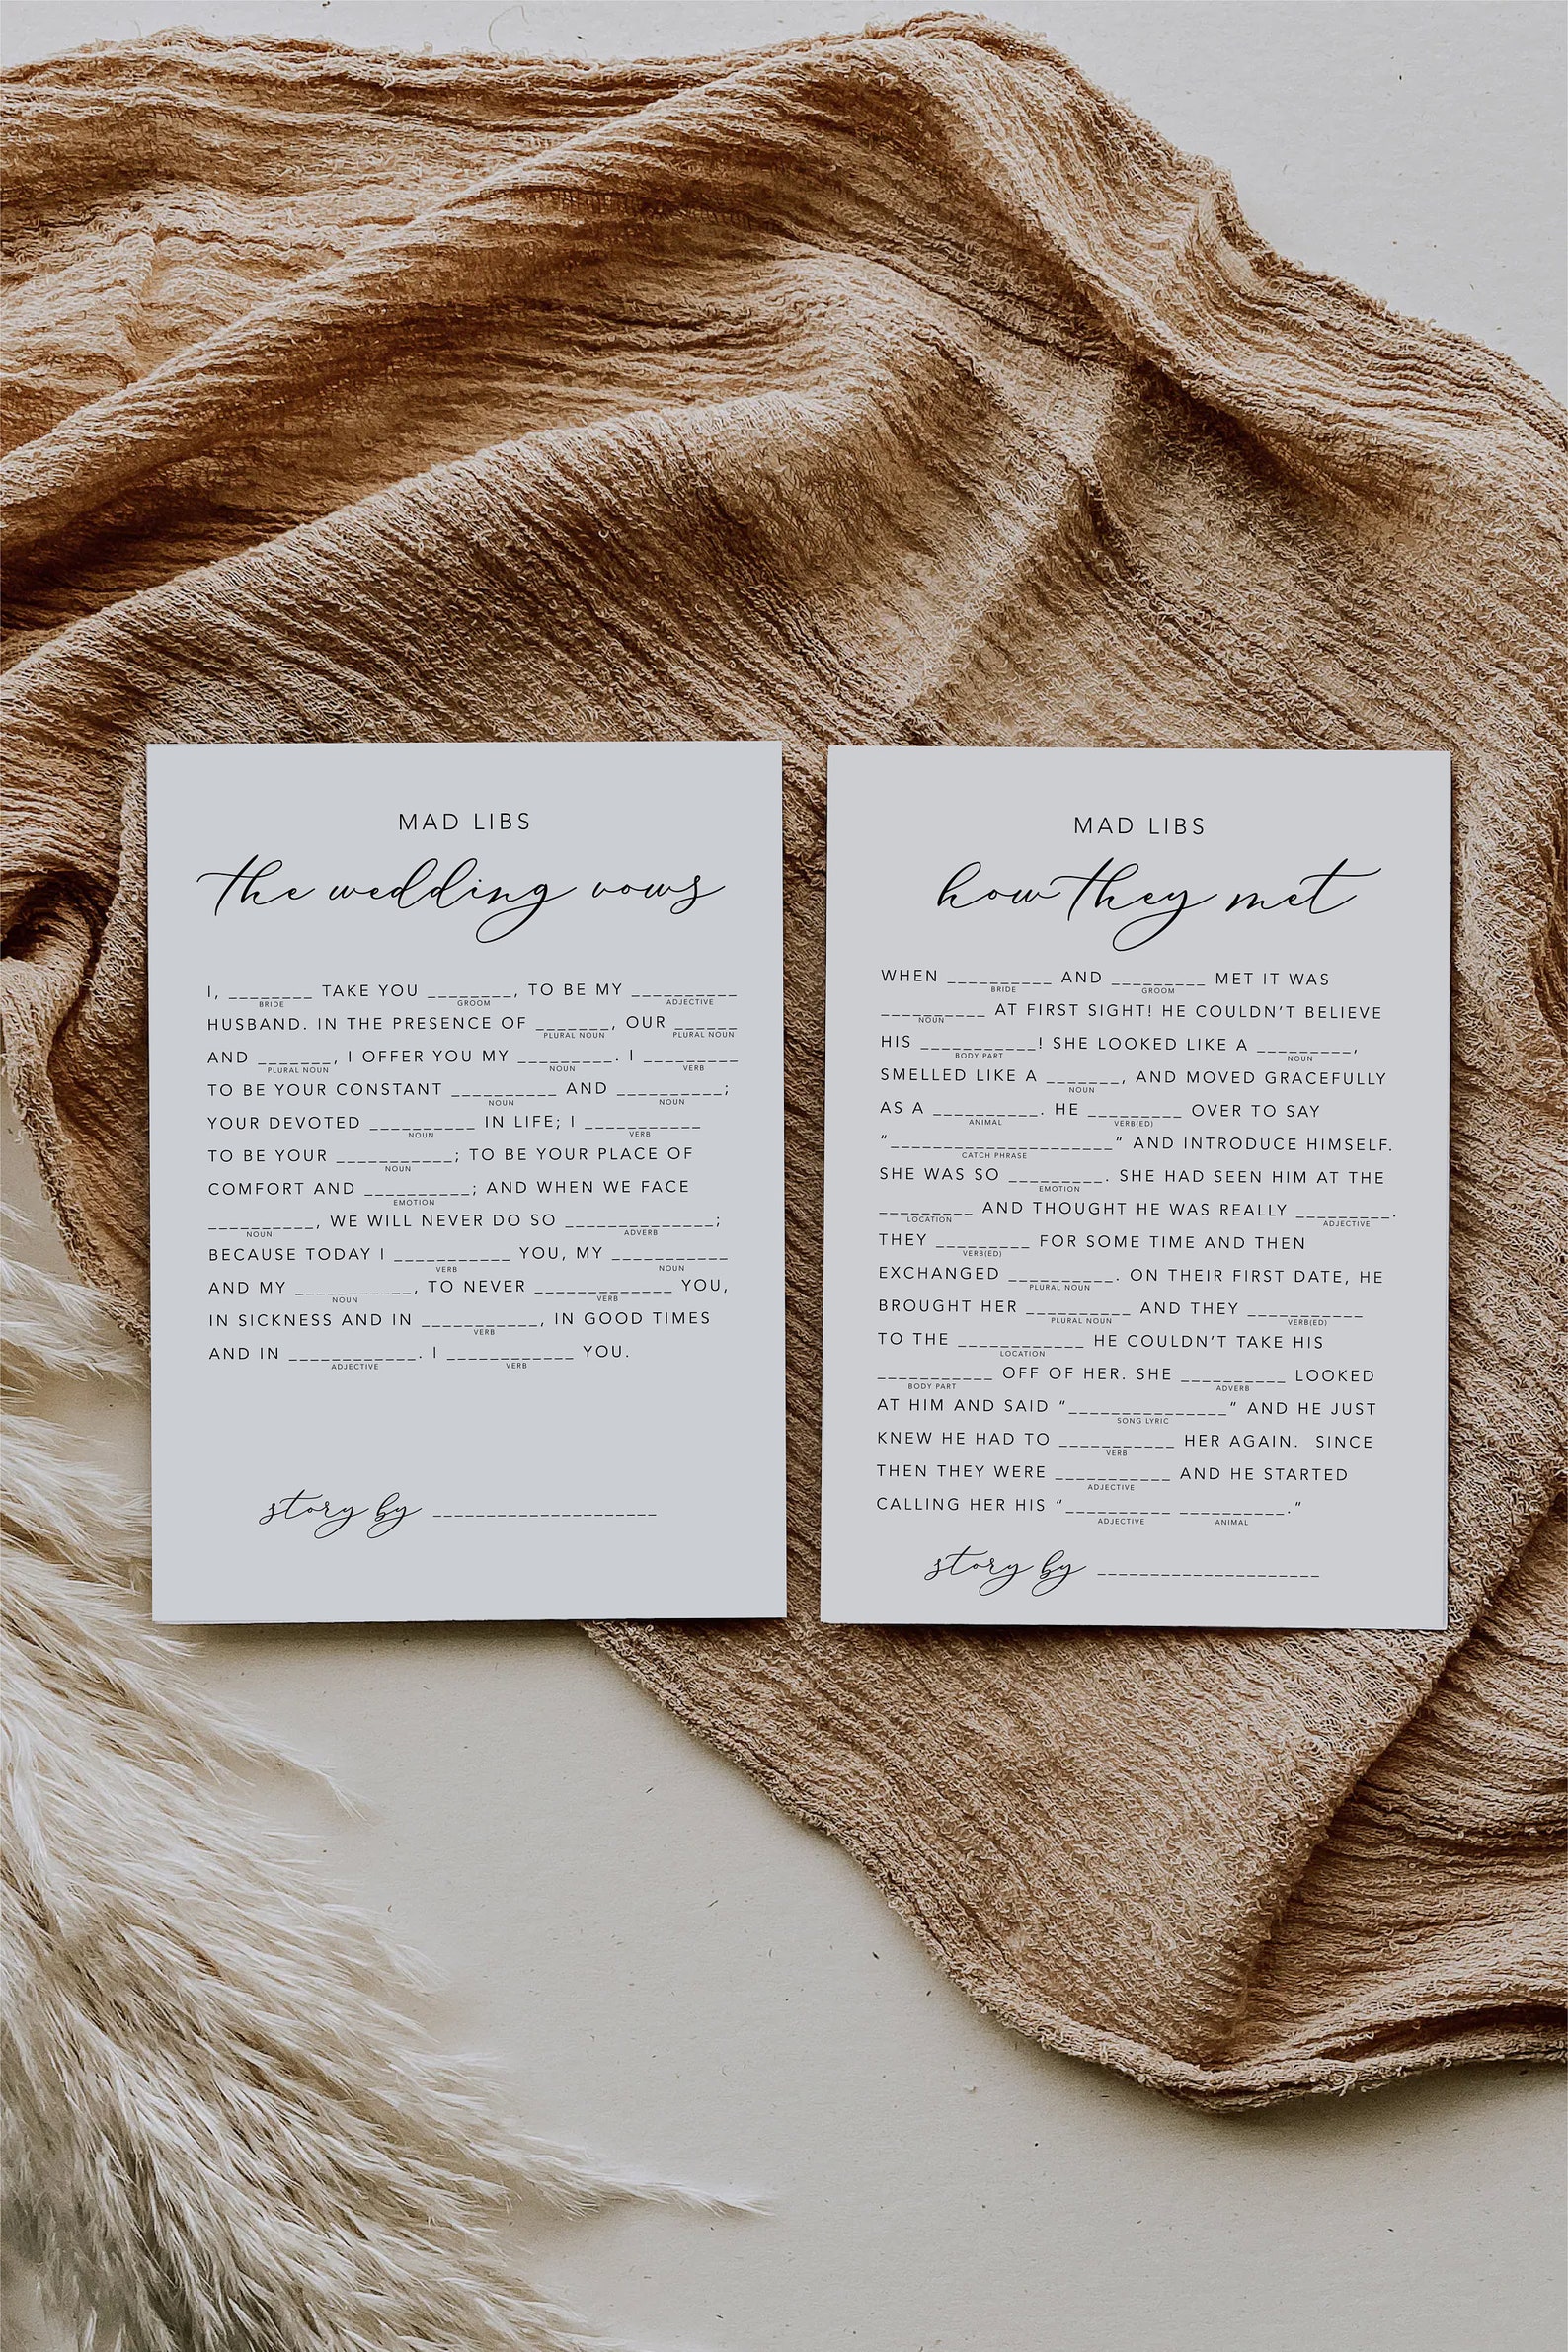 MAD LIBS
the wedding vows
I, ________ TAKE YOU ________, TO BE MY __________
BRIDE GROOM ADJECTIVE
HUSBAND. IN THE PRESENCE OF _______, OUR ______
PLURAL NOUN PLURAL NOUN
AND _______, I OFFER YOU MY _________. I _________
PLURAL NOUN NOUN VERB
TO BE YOUR CONSTANT __________ AND __________;
NOUN NOUN
YOUR DEVOTED __________ IN LIFE; I ___________
NOUN VERB
TO BE YOUR ___________; TO BE YOUR PLACE OF
NOUN
COMFORT AND __________; AND WHEN WE FACE
EMOTION
__________, WE WILL NEVER DO SO ______________;
NOUN ADVERB
BECAUSE TODAY I ___________ YOU, MY ___________
VERB NOUN
AND MY ___________, TO NEVER _____________ YOU,
NOUN VERB
IN SICKNESS AND IN ___________, IN GOOD TIMES
VERB
AND IN ____________. I ____________ YOU.
ADJECTIVE VERB
story by ____________________
MAD LIBS
how they met
WHEN __________ AND _________ MET IT WAS
BRIDE GROOM
__________ AT FIRST SIGHT! HE COULDN’T BELIEVE
NOUN
HIS ___________! SHE LOOKED LIKE A _________,
BODY PART NOUN
SMELLED LIKE A _______, AND MOVED GRACEFULLY
NOUN
AS A __________. HE _________ OVER TO SAY
ANIMAL VERB(ED)
“_____________________” AND INTRODUCE HIMSELF.
CATCH PHRASE
SHE WAS SO _________. SHE HAD SEEN HIM AT THE
EMOTION
_________ AND THOUGHT HE WAS REALLY _________.
LOCATION ADJECTIVE
THEY _________ FOR SOME TIME AND THEN
VERB(ED)
EXCHANGED __________. ON THEIR FIRST DATE, HE
PLURAL NOUN
BROUGHT HER __________ AND THEY ___________
PLURAL NOUN VERB(ED)
TO THE ____________ HE COULDN’T TAKE HIS
LOCATION
___________ OFF OF HER. SHE __________ LOOKED
BODY PART ADVERB
AT HIM AND SAID “_______________” AND HE JUST
SONG LYRIC
KNEW HE HAD TO ___________ HER AGAIN. SINCE
VERB
THEN THEY WERE ___________ AND HE STARTED
ADJECTIVE
CALLING HER HIS “__________ __________.”
ADJECTIVE ANIMAL
story by ____________________